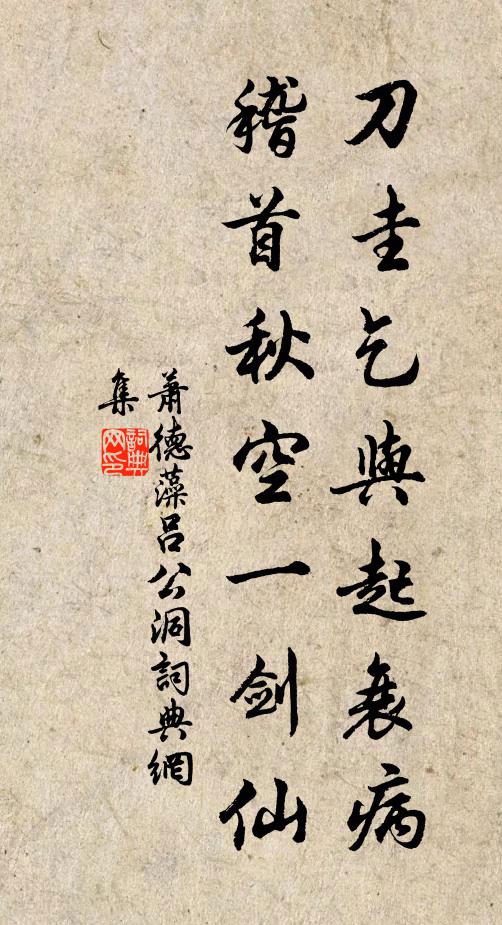 刀圭乞與起衰病
稽首秋空一劍仙
蕭德藻呂公洞詞典網
集
詞典
网印